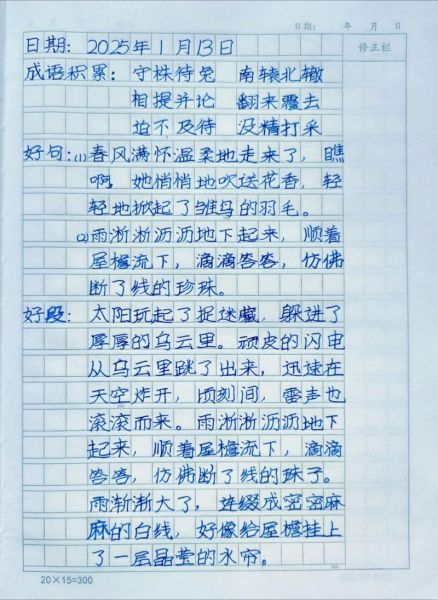 日期: 年 月 日
修正栏
日期: 2025年1月13日
成语积累: 守株待兔 南辕北辙
相提并论 翻来覆去
迫不及待 没精打采
好句:(1)春风满怀温柔地走来了,瞧
啊,她悄悄地吹送花香,轻
轻地掀起了雏鸟的羽毛。
(2)雨淅淅沥沥地下起来,顺着
屋檐流下,滴滴答答,仿佛
断了线的珍珠。
好段: 太阳玩起了捉迷藏,躲进了
厚厚的乌云里。顽皮的闪电
从乌云里跳了出来,迅速在
天空炸开,顷刻间,雷声也
滚滚而来。雨淅淅沥沥地下
起来,顺着屋檐流下,滴滴
答答,仿佛断了线的珠子。
雨渐渐大了,连缀成密密麻
麻的白线,好像给屋檐挂上
了一层晶莹的水帘。
20×15=300